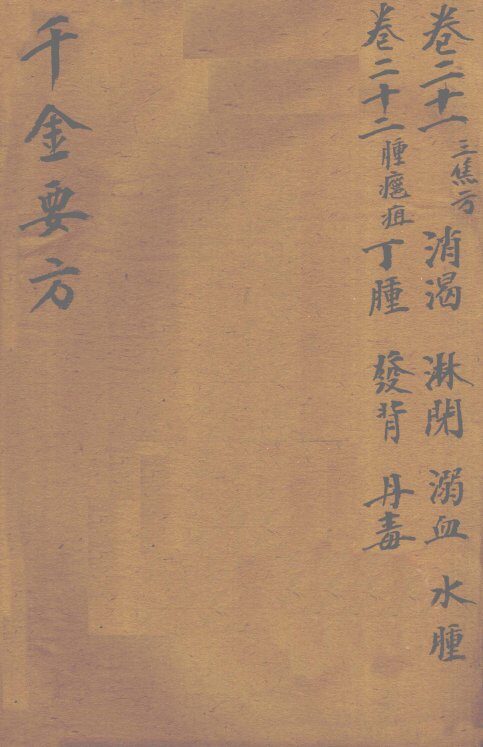 卷二十一 三焦方 消渴 淋閉 溺血 水腫
卷二十二 腫癰疽 丁腫 發背 丹毒
千金要方